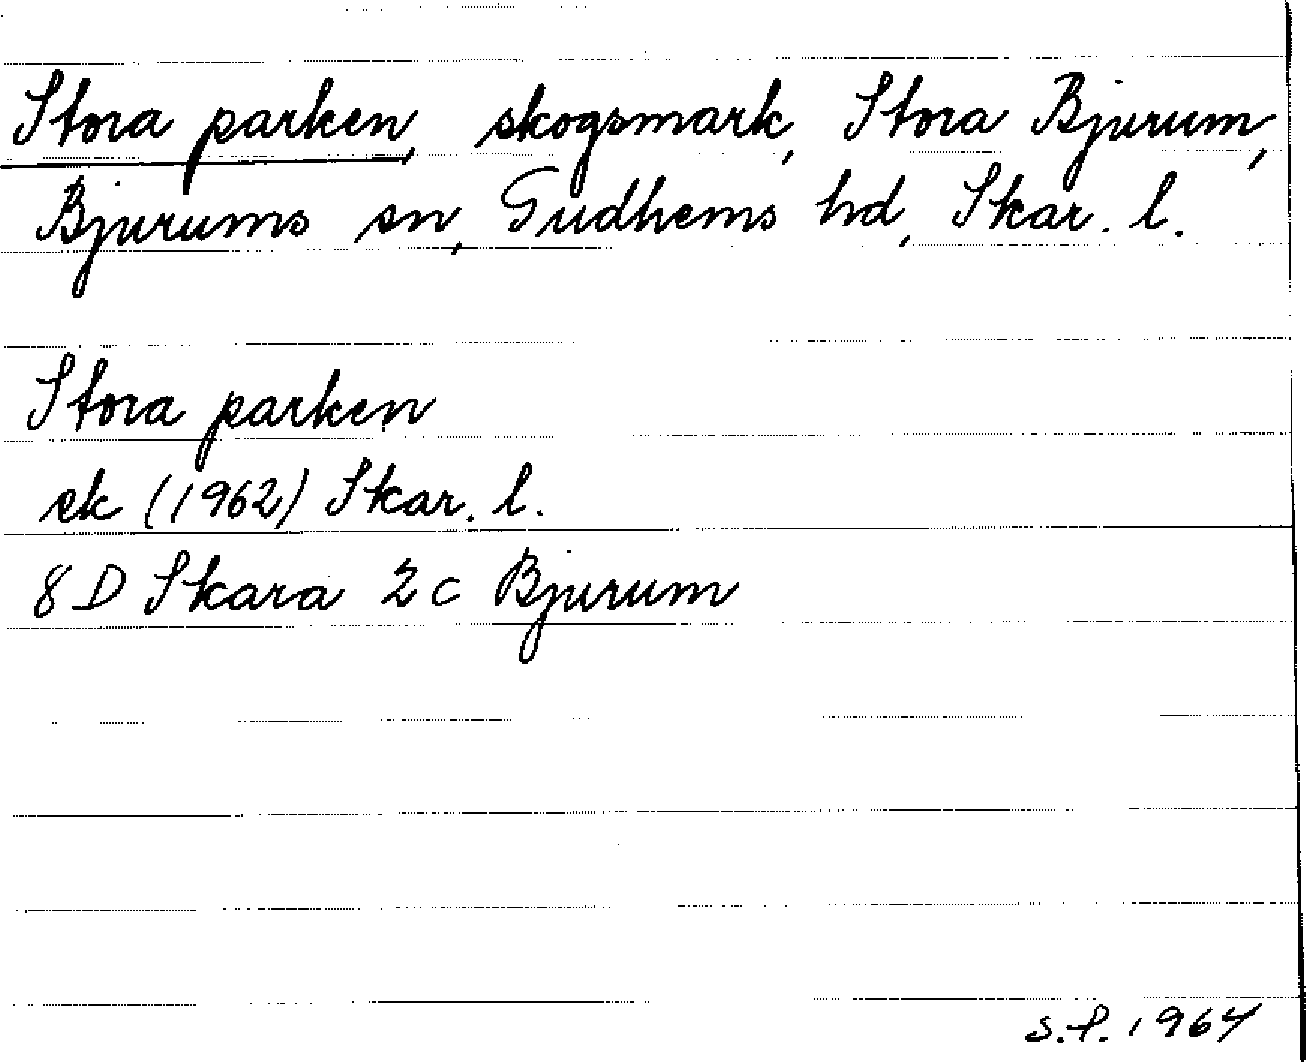 Stora parken, skogsmark, Stora Bjurum,
Bjurums sn, Gudhems hd, Skar. l.
Stora parken
ek (1962) Skar. l.
8 D Skara 2 c Bjurum
S.P. 1964